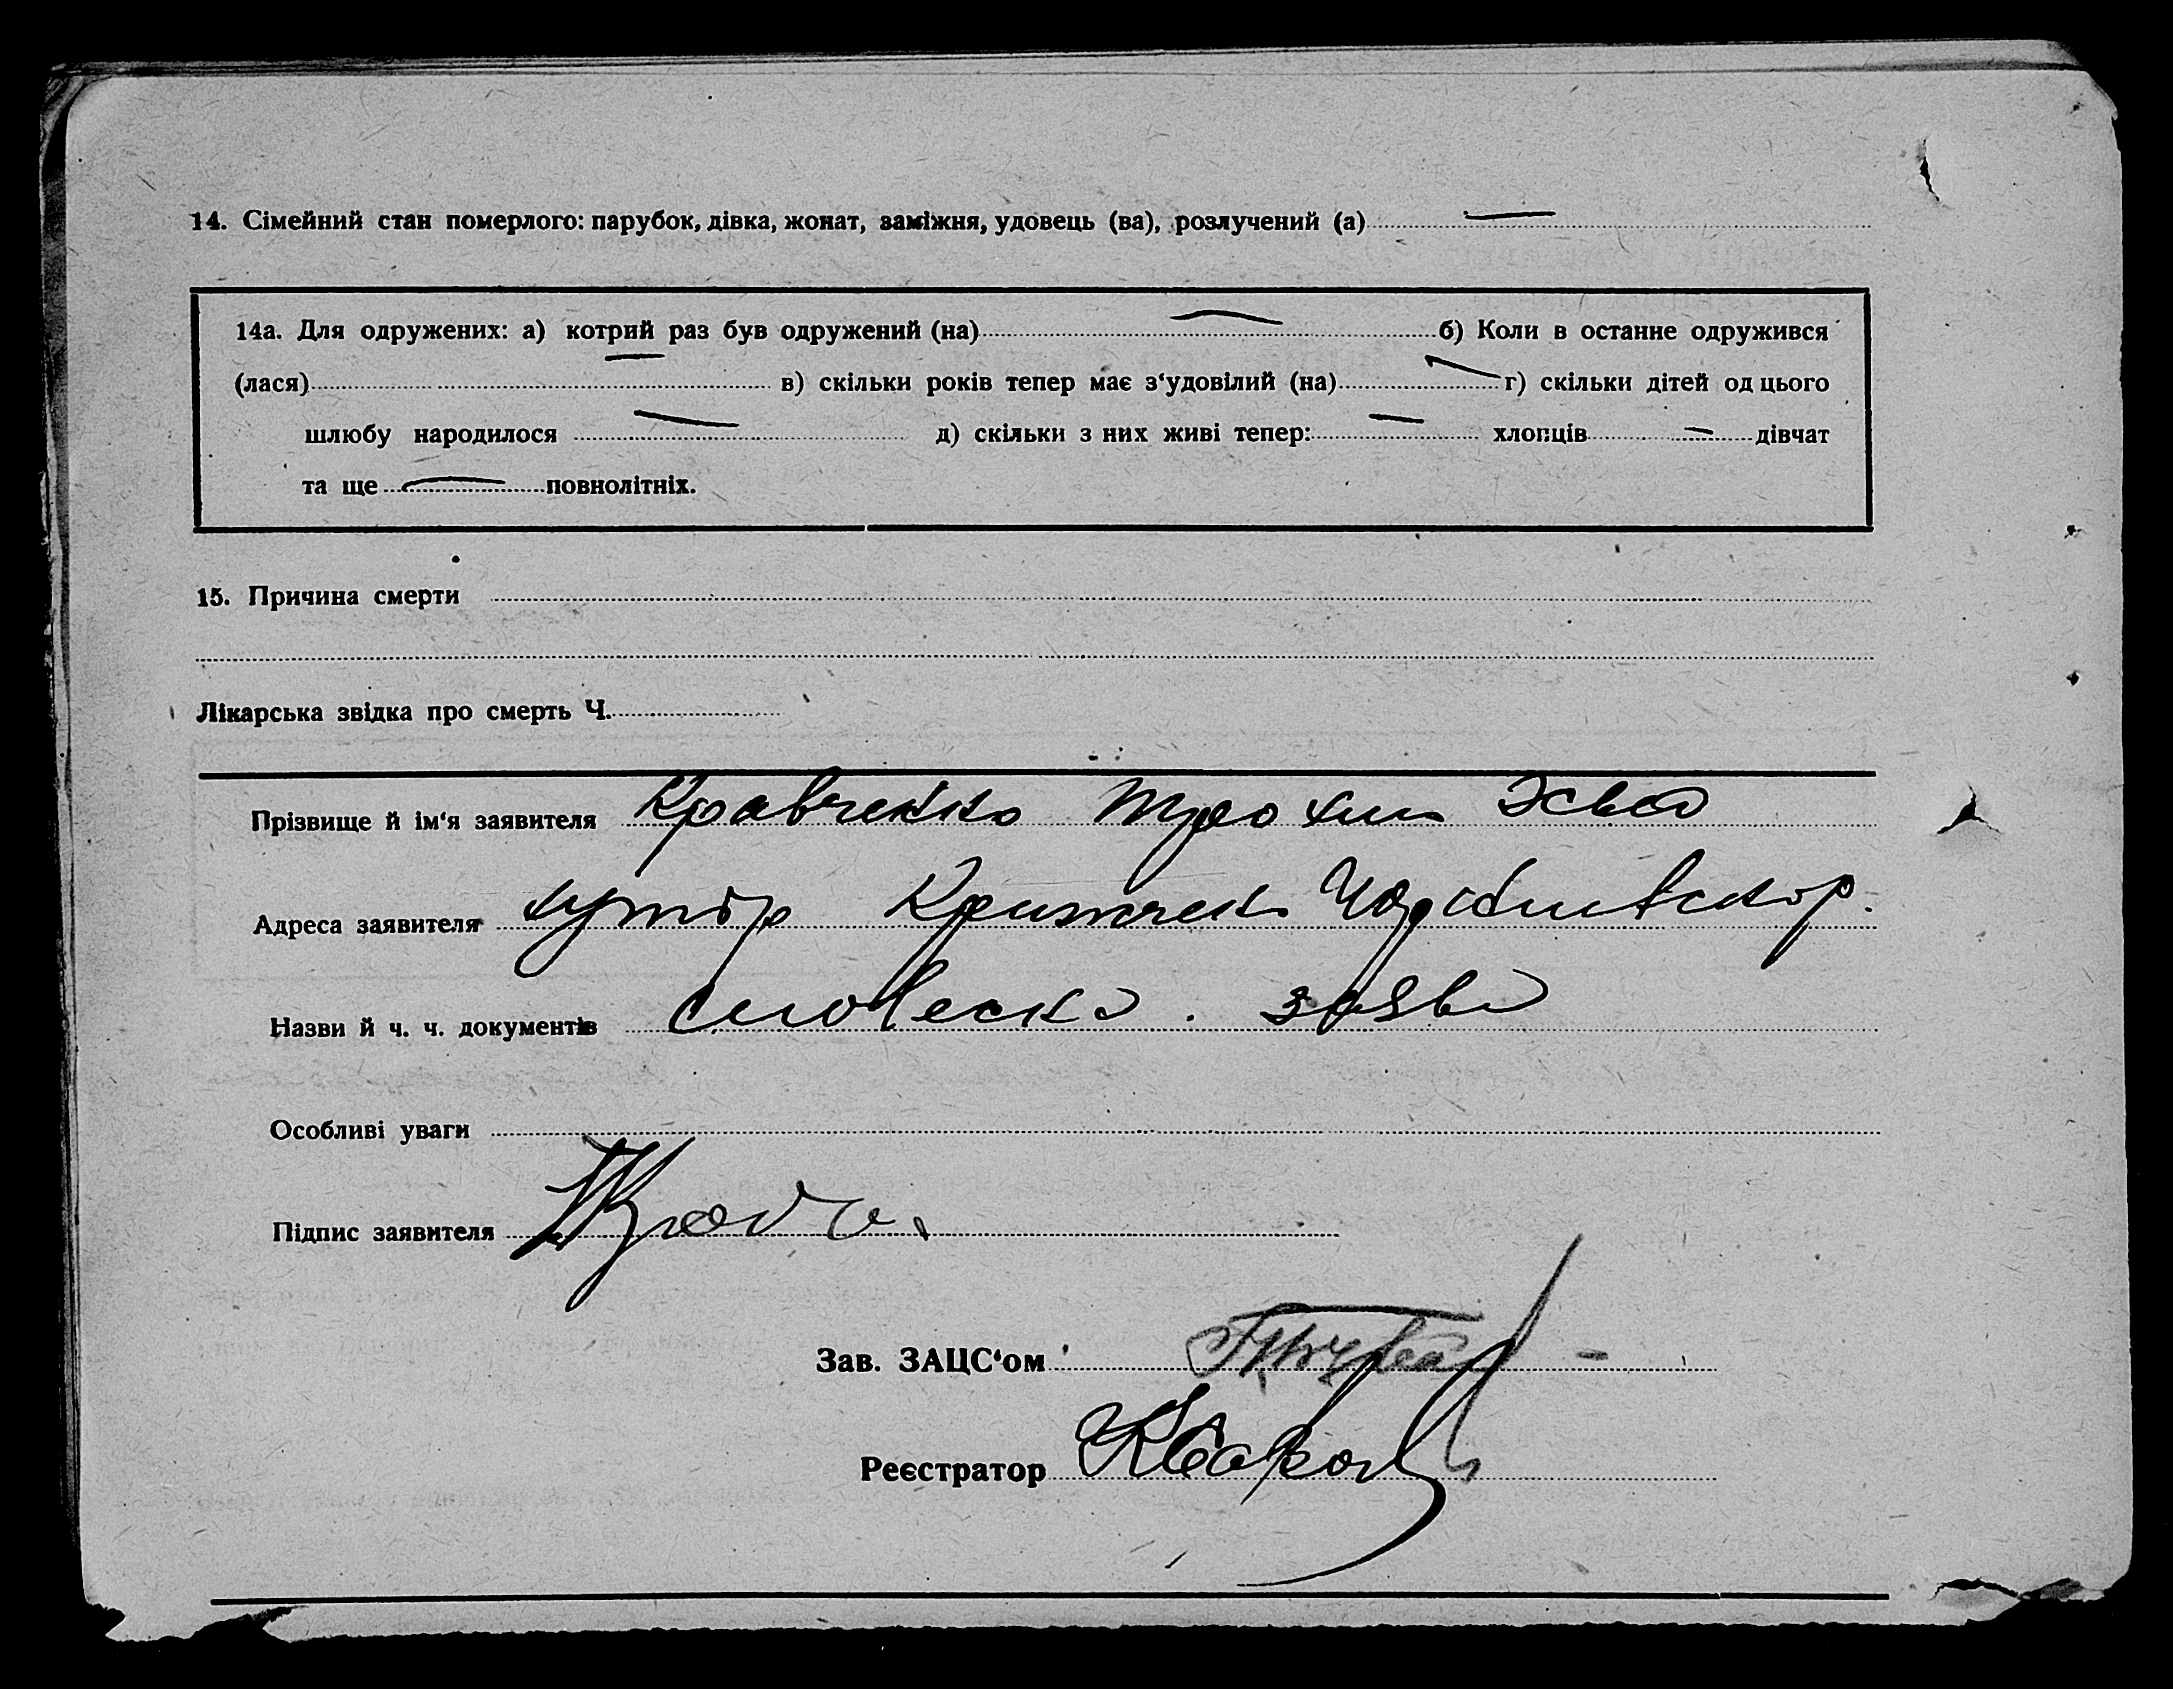 14. Сімейний стан померлого: парубок, дівка, жонат, заміжня, удовець (ва), розлучений (а) —
14а. Для одружених: а) котрий раз був одружений (на) — б) Коли в останне одружився
(лася) — в) скільки років тепер має з‘удовілий (на) — г) скільки дітей од цього
шлюбу народилося — д) скільки з них живі тепер: — хлопців — дівчат
та ще — повнолітніх.
15. Причина смерти
Лікарська звідка про смерть Ч.
Прізвище й ім‘я заявителя Кравченко Трохим
Адреса заявителя хутір
Назви й ч. ч. документів словеска заява
Особливі уваги
Підпис заявителя
Зав. ЗАЦС‘ом
Реєстратор